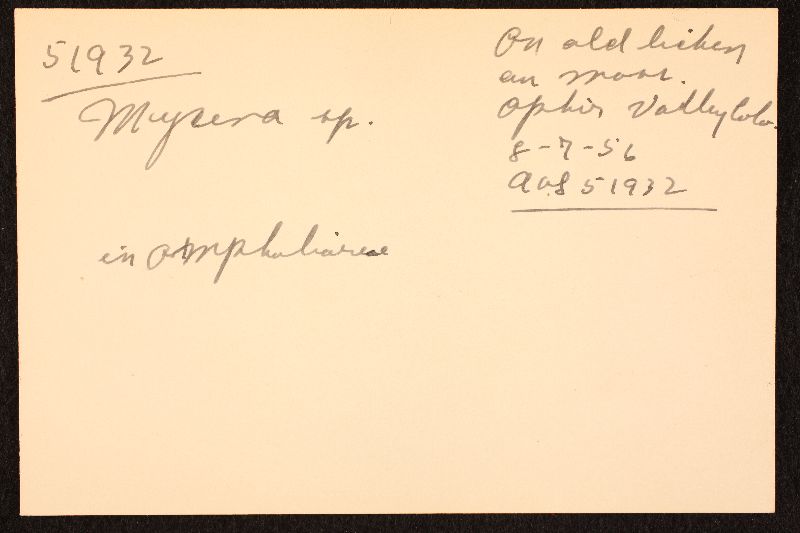 51932
Mycena sp.
in omphaliarae
On old lichen
on moor.
Ophir Valley Colo.
8-7-56
AHS 51932